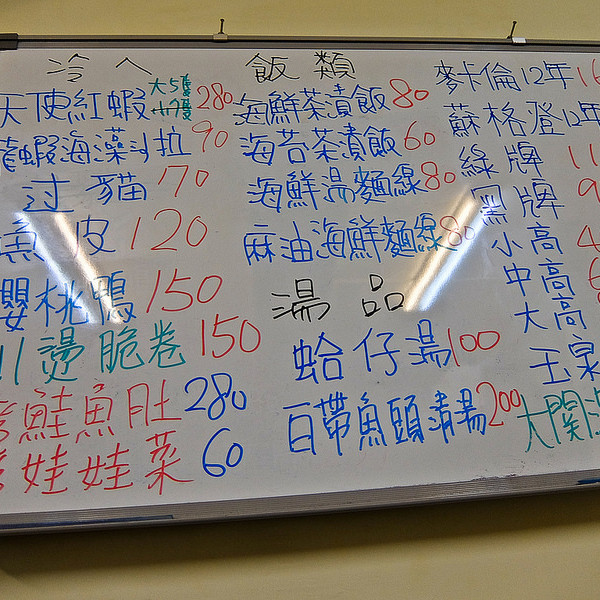 冷
飯類
天使紅蝦 280
龍蝦海藻沙拉 90
过貓 70
魚皮 120
櫻桃鴨 150
川燙脆卷 150
鮭魚肚 280
娃娃菜 60
海鮮茶漬飯 80
海苔茶漬飯 60
海鮮湯麵線 80
麻油海鮮麵線 80
湯品
蛤仔湯 100
白帶魚頭清湯 200
麥卡倫12年
蘇格登12年
綠牌
黑牌
小高
中高
大高
玉泉
大関